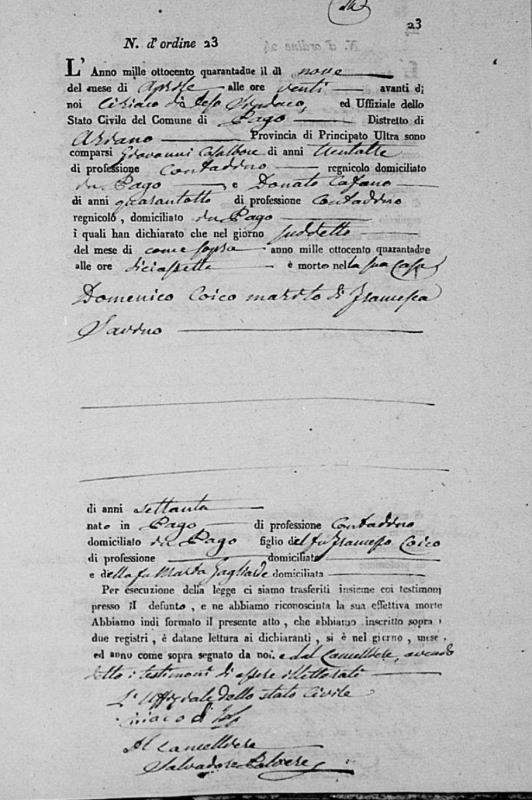 23
N. d'ordine 23
L'Anno mille ottocento quarantadue il dì nove
del mese di Aprile alle ore venti avanti di
noi Ciriaco de Ieso Sindaco, ed Uffiziale dello
Stato Civile del Comune di Pago Distretto di
Ariano Provincia di Principato Ultra sono
comparsi Giovanni di anni trentatre
di professione Contadino regnicolo domiciliato
in Pago e Donato Cafano
di anni quarantotto di professione Contadino
regnicolo, domiciliato in Pago
i quali han dichiarato che nel giorno suddetto
del mese di come sopra anno mille ottocento quarantadue
alle ore diciassette è morto nella sua Casa
Domenico Coico marito di Francesca
Savino
di anni settanta
nato in Pago di professione Contadino
domiciliato in Pago figlio del fu Francesco Coico
di professione domiciliato
e della fu Maria Gagliarde domiciliata
Per esecuzione della legge ci siamo trasferiti insieme coi testimonj
presso il defunto, e ne abbiamo riconosciuta la sua effettiva morte
Abbiamo indi formato il presente atto, che abbiamo inscritto sopra i
due registri, è datane lettura ai dichiaranti, si è nel giorno, mese,
ed anno come sopra segnato da noi, e dal Cancelliere, avendo
detto i testimoni di essere illetterati
L'Uffiziale dello stato Civile
Ciriaco d Ieso
Il Cancelliere
Salvadore